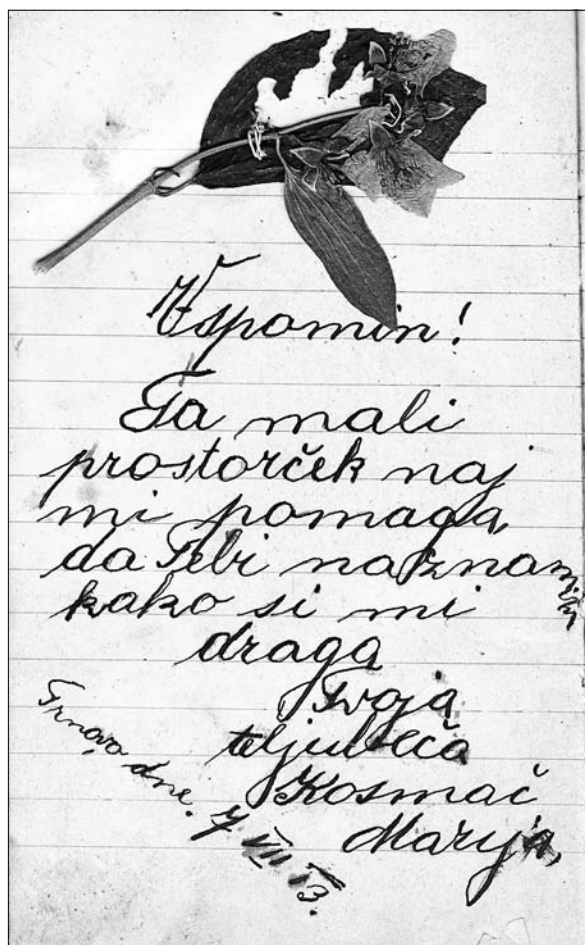 Vspomin!
Ta mali
prostorček naj
mi pomaga,
da Tebi naznanim
kako si mi
draga
Tvoja
teljubeča
Kosmač
Marija,
Trnovo dne. 7 VIII 13.